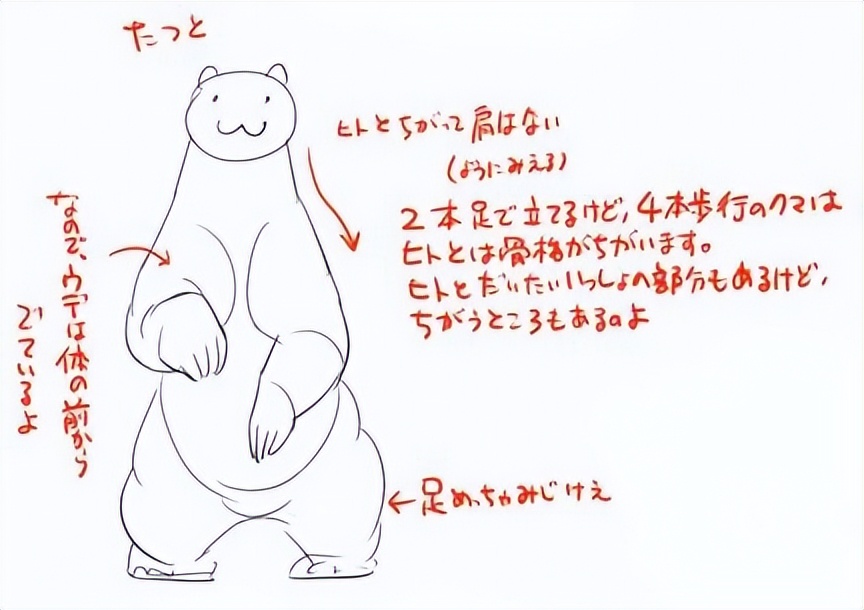 たつと
ヒトとちがって肩はない
(ようにみえる)
2本足で立てるけど,4本歩行のクマは
ヒトとは骨格がちがいます。
ヒトとだいたいいっしょの部分もあるけど,
ちがうところもあるのよ
なので、ウデは体の前から
でているよ
←足めっちゃみじけえ